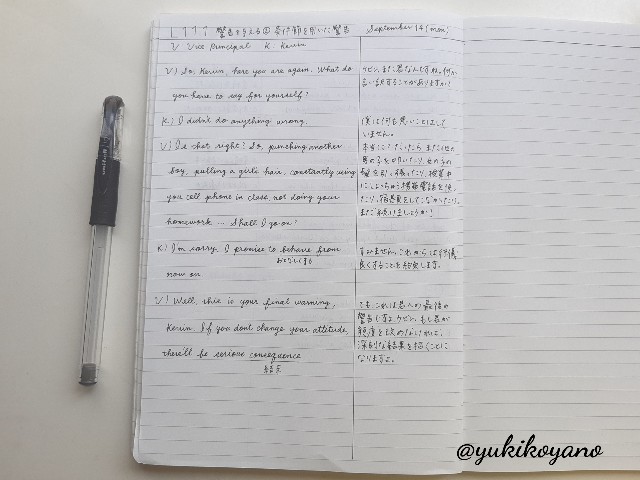 警告を与える① 条件節を用いた警告 September 14 (mon)
V Vice Principal K. Kevin
V) So, Kevin, here you are again. What do
you have to say for yourself?
ケビン、また君なんですね。何か
言い訳することがありますか?
K) I didn't do anything wrong.
僕は何も悪いことはして
いません。
V) Is that right? So, punching another
boy, pulling a girl's hair, constantly using
you cell phone in class, not doing your
homework ... Shall I go on?
本当に?
男の子を叩いたり、女の子の
髪を引っ張ったり、授業中
にしょっちゅう携帯電話を使っ
たり、宿題をしてこなかったり。
まだ続けましょうか?
K) I'm sorry. I promise to behave from
おとなしくする
now on
すみません。これからは行儀
良くすることを約束します。
V) Well, this is your final warning,
Kevin. If you don't change your attitude,
there'll be serious consequence
結果
でも、これは君への最後の
警告ですよ、ケビン。もし君が
態度を改めなければ、
深刻な結果を招くことに
なりますよ。
@yukikoyano